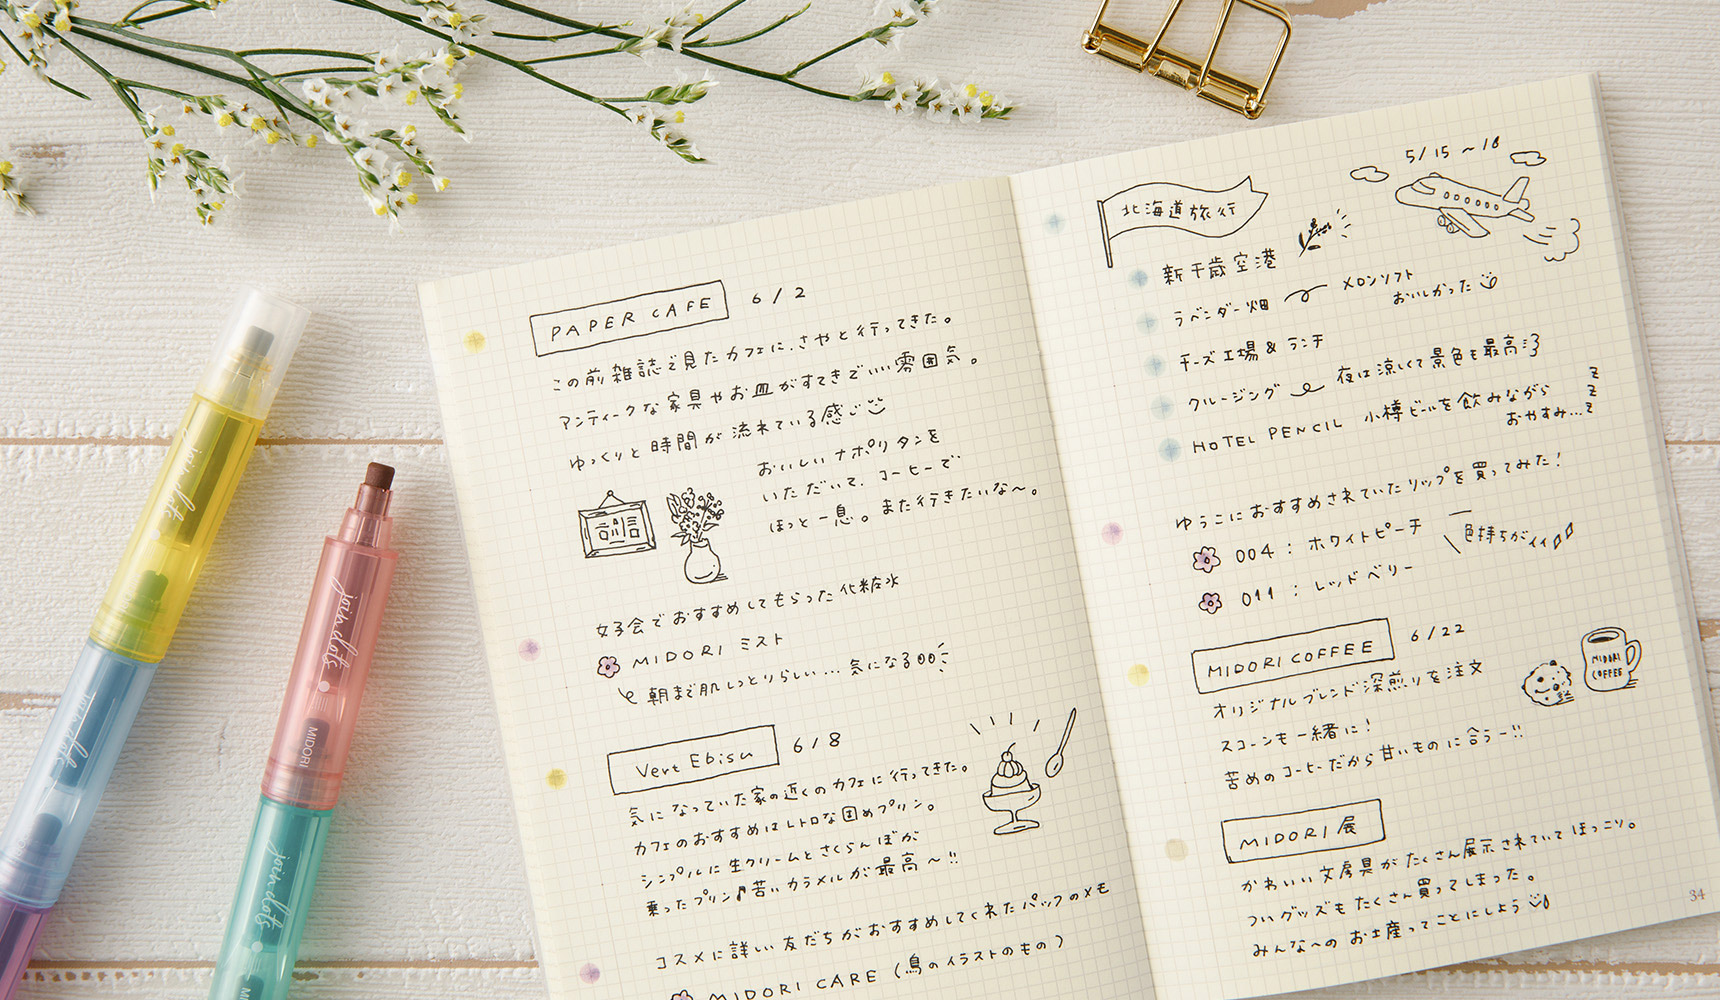 PAPER CAFE 6/2
この前雑誌で見たカフェに、さやと行ってきた。
アンティークな家具やお皿がすてきでいい雰囲気。
ゆっくりと時間が流れている感じ
おいしいナポリタンを
いただいて、コーヒーで
ほっと一息。また行きたいな〜。
女子会でおすすめしてもらった化粧水
MIDORI ミスト
朝まで肌しっとりらしい...気になる
Vert Ebisu 6/8
気になっていた家の近くのカフェに行ってきた。
カフェのおすすめはレトロな固めプリン。
シンプルに生クリームとさくらんぼが
乗ったプリン♪苦いカラメルが最高〜!!
コスメに詳しい友だちがおすすめしてくれたパックのメモ
MIDORI CARE (鳥のイラストのもの)
5/15 〜 18
北海道旅行
新千歳空港
ラベンダー畑 メロンソフト
おいしかった
チーズ工場 & ランチ
クルージング 夜は涼しくて景色も最高
HOTEL PENCIL 小樽ビールを飲みながら
おやすみ... z z z
ゆうこにおすすめされていたリップを買ってみた!
004 : ホワイトピーチ
色持ちがイイ
011 : レッドベリー
MIDORI COFFEE 6/22
オリジナルブレンド深煎りを注文
スコーンも一緒に!
苦めのコーヒーだから甘いものに合うー!!
MIDORI COFFEE
MIDORI展
かわいい文房具がたくさん展示されていてほっこり。
ついグッズもたくさん買ってしまった。
みんなへのお土産ってことにしよう
34
join dots
join dots
join dots
MIDORI
join dots